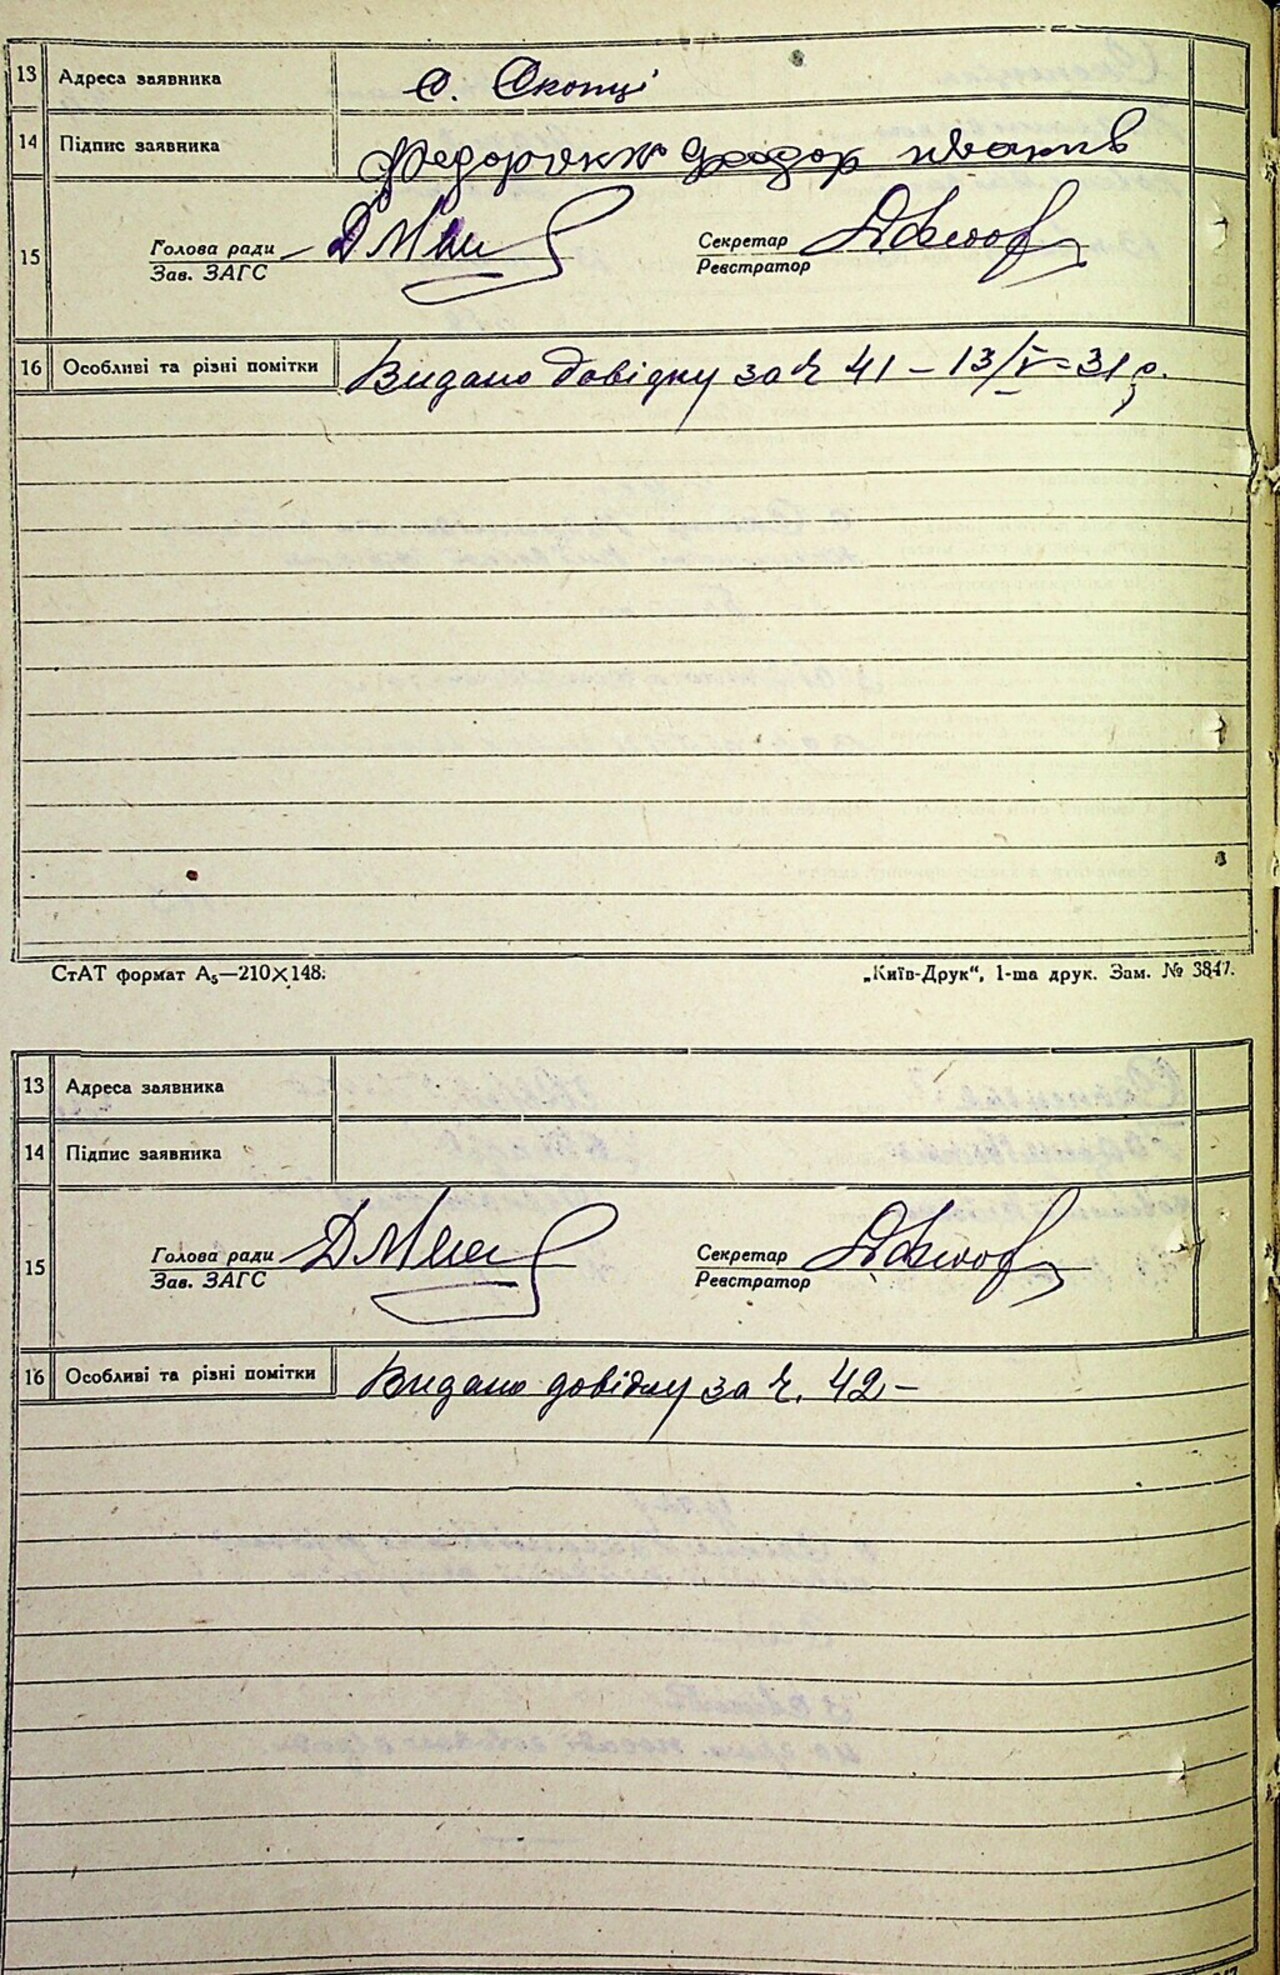 13 Адреса заявника с. Скопці
14 Підпис заявника Федоренко Федор иванів
15 Голова ради Секретар
Зав. ЗАГС Реєстратор
16 Особливі та різні помітки Видано довідку за ч 41 – 13/V–31 р.
СтАТ формат А₅—210×148. „Київ-Друк“, 1-ша друк. Зам. № 3847.
13 Адреса заявника
14 Підпис заявника
15 Голова ради Секретар
Зав. ЗАГС Реєстратор
16 Особливі та різні помітки Видано довідку за ч. 42 –